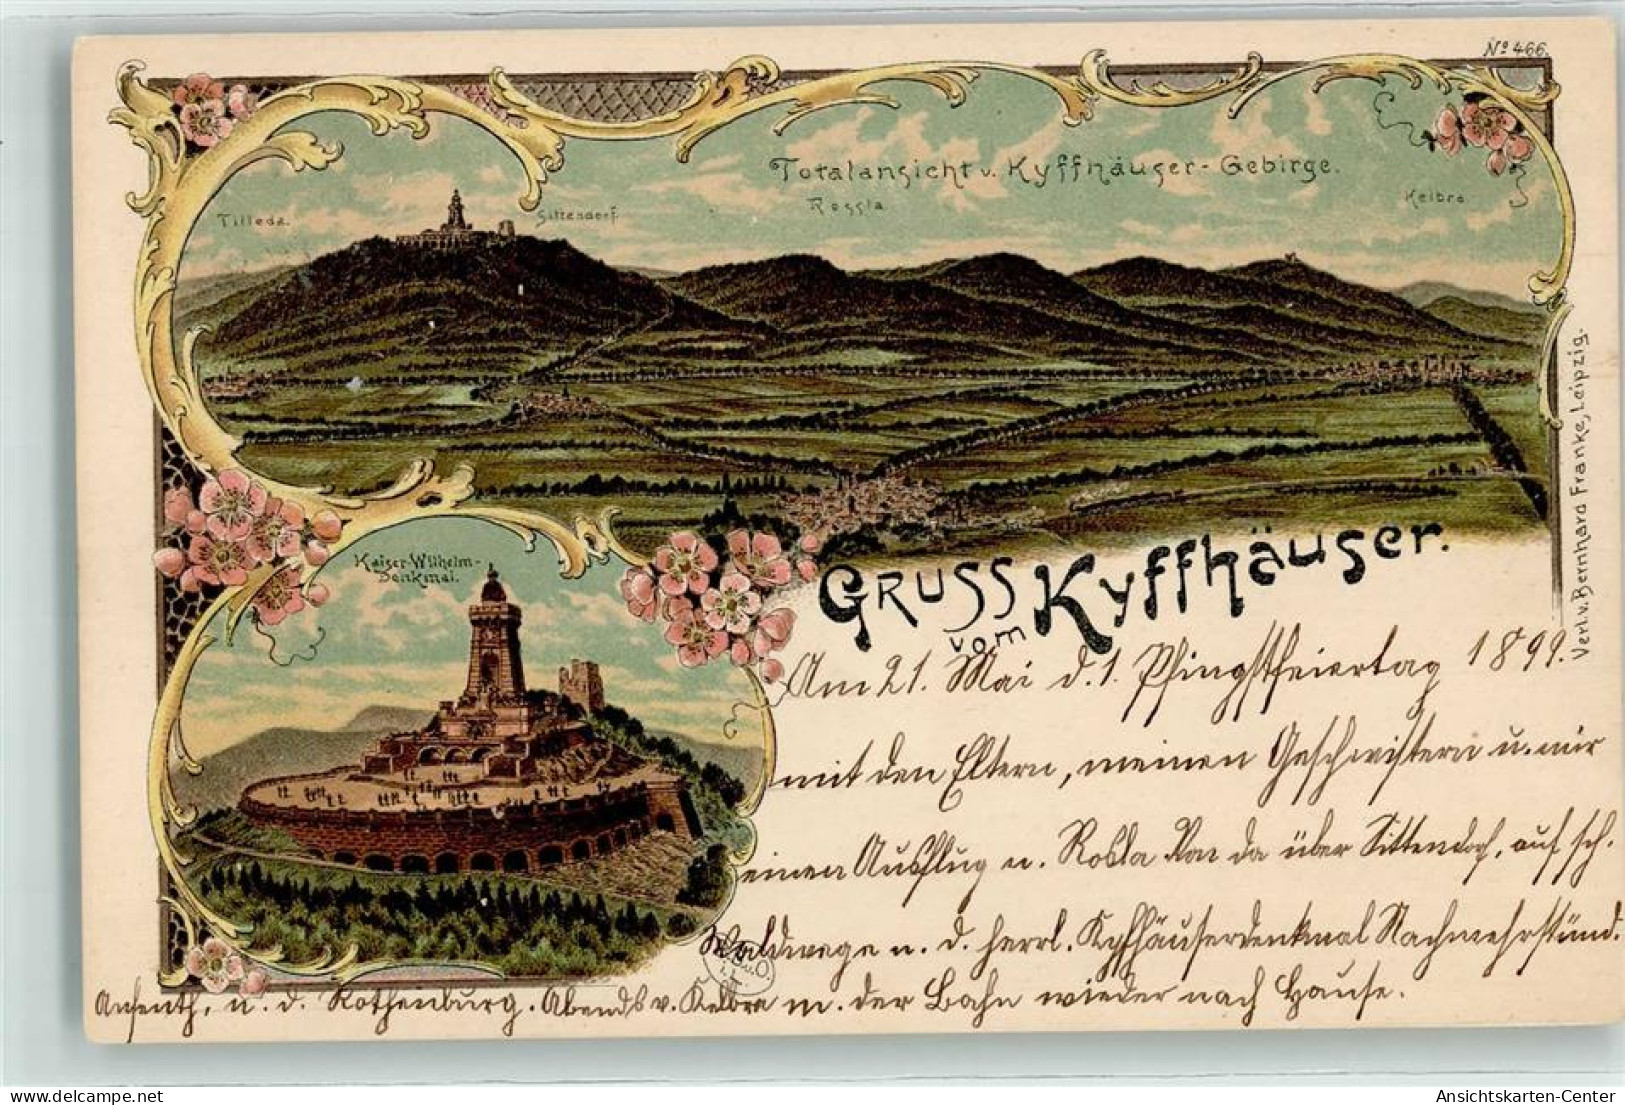 Nº 466.
Totalansicht v. Kyffhäuser-Gebirge.
Tilleda.
Sittendorf.
Rossla
Kelbra
Kaiser-Wilhelm-
Denkmal.
Gruss
vom Kyffhäuser.
Verl. v. Bernhard Franke, Leipzig.
Am 21. Mai d. 1. Pfingstfeiertag 1899.
mit den Eltern, meinen Geschwistern u. mir
einen Ausflug n. Rosla. Von da über Sittendorf, auf sch.
Waldwege n. d. herrl. Kyffhäuserdenkmal. Nachmehrstünd.
Aufenth. n. d. Rothenburg. Abends v. Kelbra m. der Bahn wieder nach Hause.
Ansichtskarten-Center